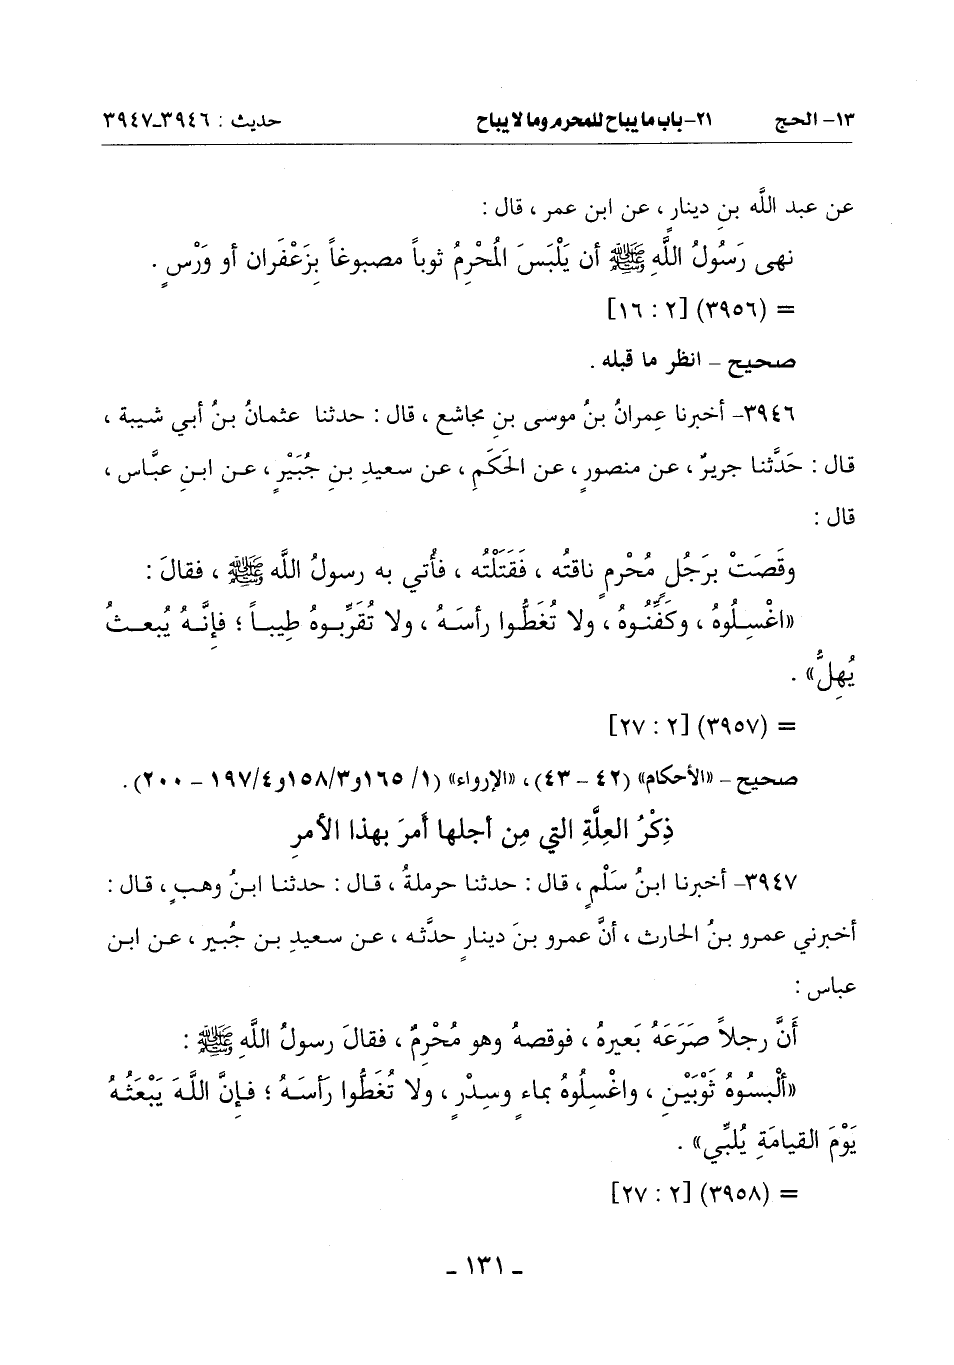 ١٣- الحج ٢١-باب ما يباح للمحرم وما لا يباح حديث : ٣٩٤٦-٣٩٤٧
عن عبد اللَّه بنِ دينارٍ ، عن ابن عمر ، قال :
نهى رَسُولُ اللَّهِ ﷺ أن يَلْبَسَ المُحْرِمُ ثوباً مصبوغاً بِزَعْفَران أو وَرْسٍ .
= (٣٩٥٦) [٢ : ١٦]
صحيح – انظر ما قبله .
٣٩٤٦- أخبرنا عمرانُ بنُ موسى بنِ مجاشع ، قال : حدثنا عثمانُ بنُ أبي شيبة ،
قال : حَدَّثنا جريرٌ ، عن منصورٍ ، عن الحَكَمِ ، عن سعيدِ بنِ جُبَيْرٍ ، عن ابنِ عبَّاس ،
قال :
وقَصَتْ بِرَجُلٍ مُحْرِمٍ ناقتُه ، فَقَتَلَتْه ، فأُتي به رسولُ اللَّه ﷺ ، فقالَ :
«اغْسِلُوهُ ، وكَفِّنُوهُ ، ولا تُغَطُّوا رأسَهُ ، ولا تُقَرِّبوهُ طِيباً ؛ فإنَّهُ يُبعثُ
يُهِلُّ» .
= (٣٩٥٧) [٢ : ٢٧]
صحيح – «الأحكام» (٤٢ – ٤٣) ، «الإرواء» (١/ ١٦٥و٣/١٥٨و٤/١٩٧ – ٢٠٠) .
ذِكْرُ العِلَّةِ التي مِن أجلها أَمرَ بهذا الأمرِ
٣٩٤٧- أخبرنا ابنُ سَلْمٍ ، قال : حدثنا حرملةُ ، قال : حدثنا ابنُ وهبٍ ، قال :
أخبرني عمرو بنُ الحارث ، أنَّ عمرو بنَ دينارٍ حدَّثه ، عن سعيدِ بن جُبير ، عن ابن
عباس :
أَنَّ رجلاً صَرَعَهُ بَعيرهُ ، فوقصهُ وهو مُحْرِمٌ ، فقالَ رسولُ اللَّهِ ﷺ :
«ألْبسُوهُ ثَوْبَيْنِ ، واغْسِلُوهُ بماءٍ وسِدْرٍ ، ولا تُغَطُّوا رَأسَهُ ؛ فإنَّ اللَّهَ يَبْعَثُهُ
يَوْمَ القيامَةِ يُلبِّي» .
= (٣٩٥٨) [٢ : ٢٧]
– ١٣١ –